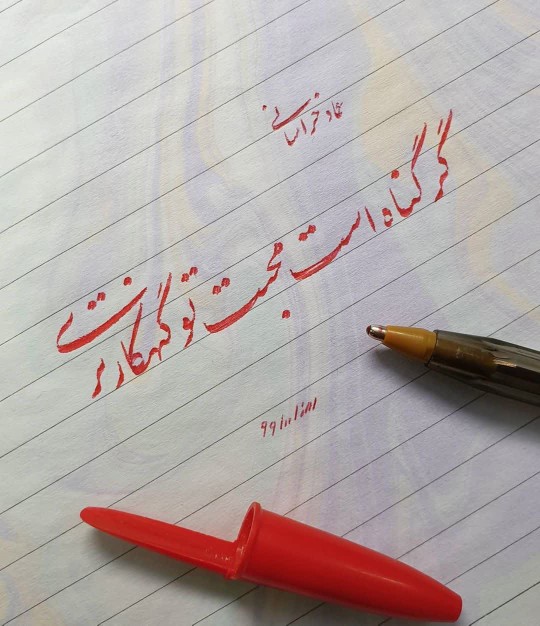 عماد خراسانی
گر گناه است محبت تو گنهکارترینی